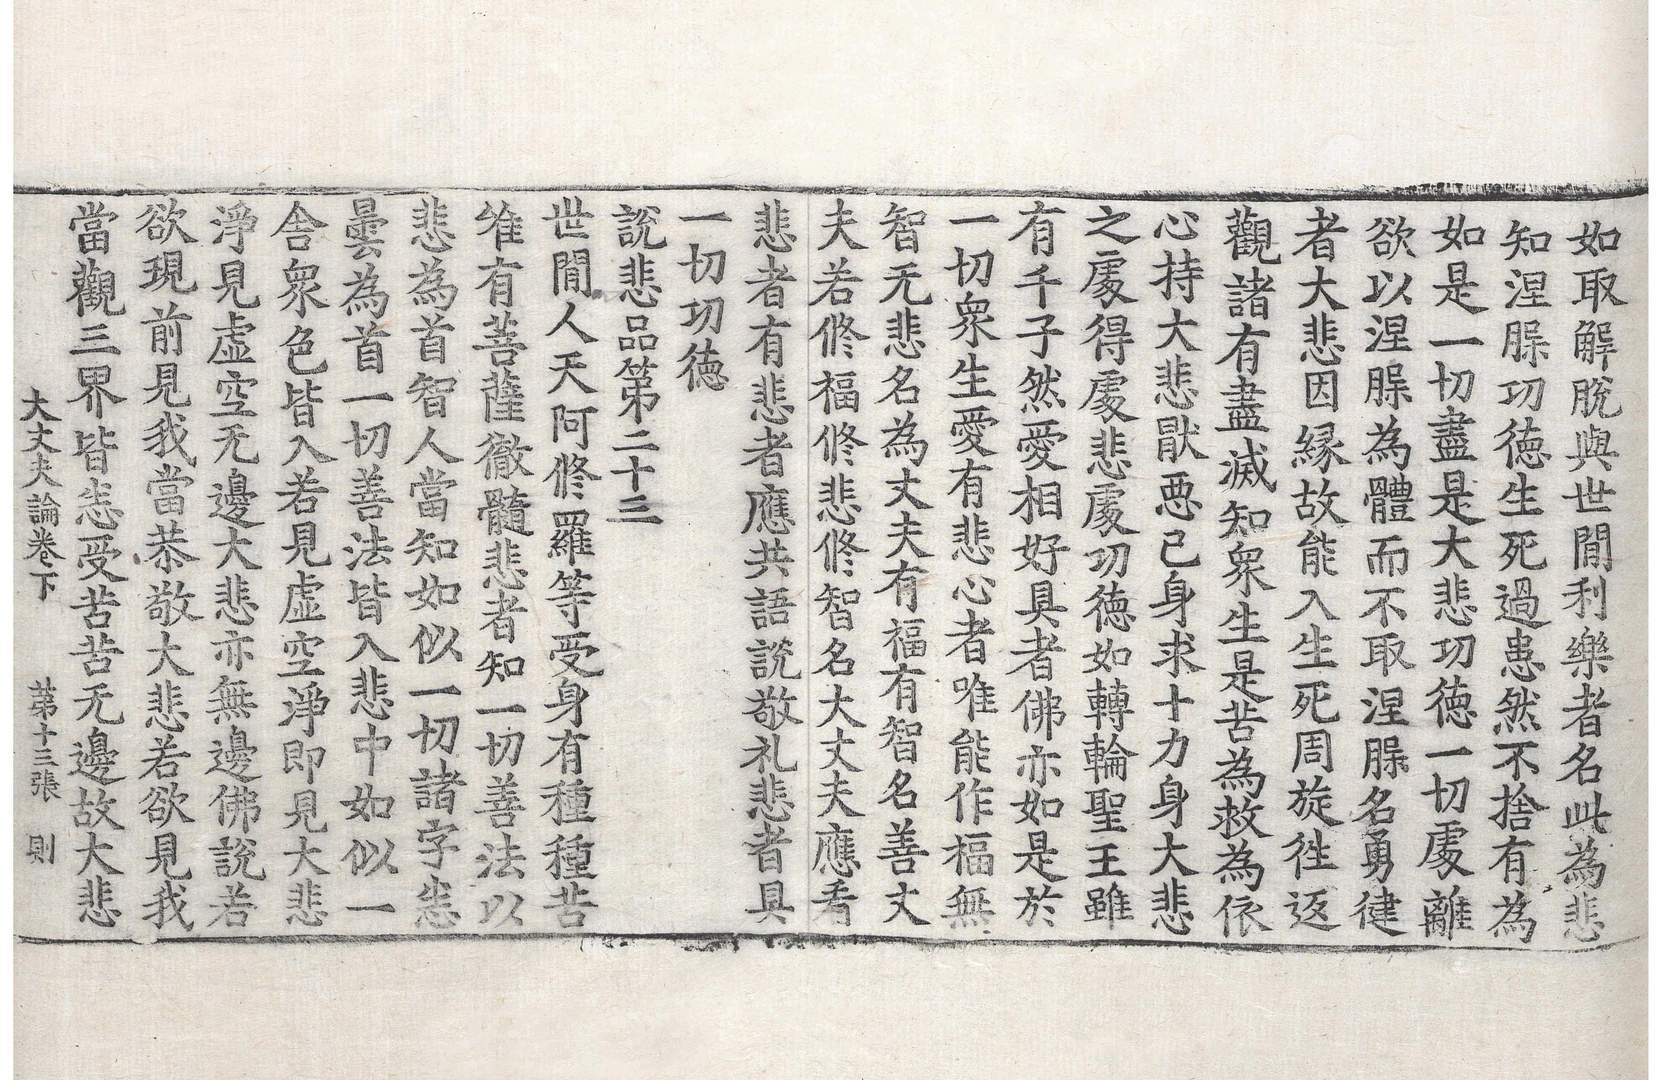 如取解脫與世閒利樂者名此為悲
知涅脲功德生死過患然不捨有為
如是一切盡是大悲功德一切處離
欲以涅脲為體而不取涅脲名勇健
者大悲因緣故能入生死周旋往返
觀諸有盡滅知衆生是苦為救為依
心持大悲猒惡己身求十力身大悲
之處得處悲處功德如轉輪聖王雖
有千子然愛相好具者佛亦如是於
一切衆生愛有悲心者唯能作福無
智无悲名為丈夫有福有智名善丈
夫若修福修悲修智名大丈夫應看
悲者有悲者應共語說敬礼悲者具
一切功德
說悲品第二十三
世閒人天阿修羅等受身有種種苦
唯有菩薩徹髓悲者知一切善法以
悲為首智人當知如似一切諸字悉
曇為首一切善法皆入悲中如似一
舍衆色皆入若見虛空淨即見大悲
淨見虛空无邊大悲亦無邊佛說若
欲現前見我當恭敬大悲若欲見我
當觀三界皆悉受苦苦无邊故大悲
大丈夫論卷下 第十三張 則